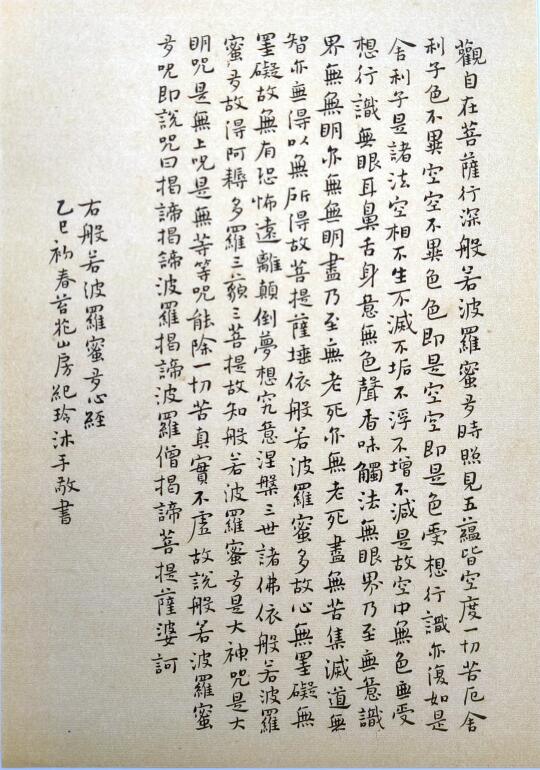 觀自在菩薩行深般若波羅蜜多時照見五蘊皆空度一切苦厄舍
利子色不異空空不異色色即是空空即是色受想行識亦復如是
舍利子是諸法空相不生不滅不垢不浮不增不減是故空中無色無受
想行識無眼耳鼻舌身意無色聲香味觸法無眼界乃至無意識
界無無明亦無無明盡乃至無老死亦無老死盡無苦集滅道無
智亦無得以無所得故菩提薩埵依般若波羅蜜多故心無罣礙無
罣礙故無有恐怖遠離顛倒夢想究竟涅槃三世諸佛依般若波羅
蜜多故得阿耨多羅三藐三菩提故知般若波羅蜜多是大神咒是大
明咒是無上咒是無等等咒能除一切苦真實不虛故說般若波羅蜜
多咒即說咒曰揭諦揭諦波羅揭諦波羅僧揭諦菩提薩婆訶
右般若波羅蜜多心經
乙巳初春苔花山房紀玲沐手敬書